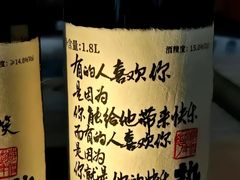 含量:1.8L
酒精度:15.0%vol
度:≥14.0%vol
有的人喜欢你
是因为
你能给他带来快乐
而有的人喜欢你
是因为
你就是他的快乐